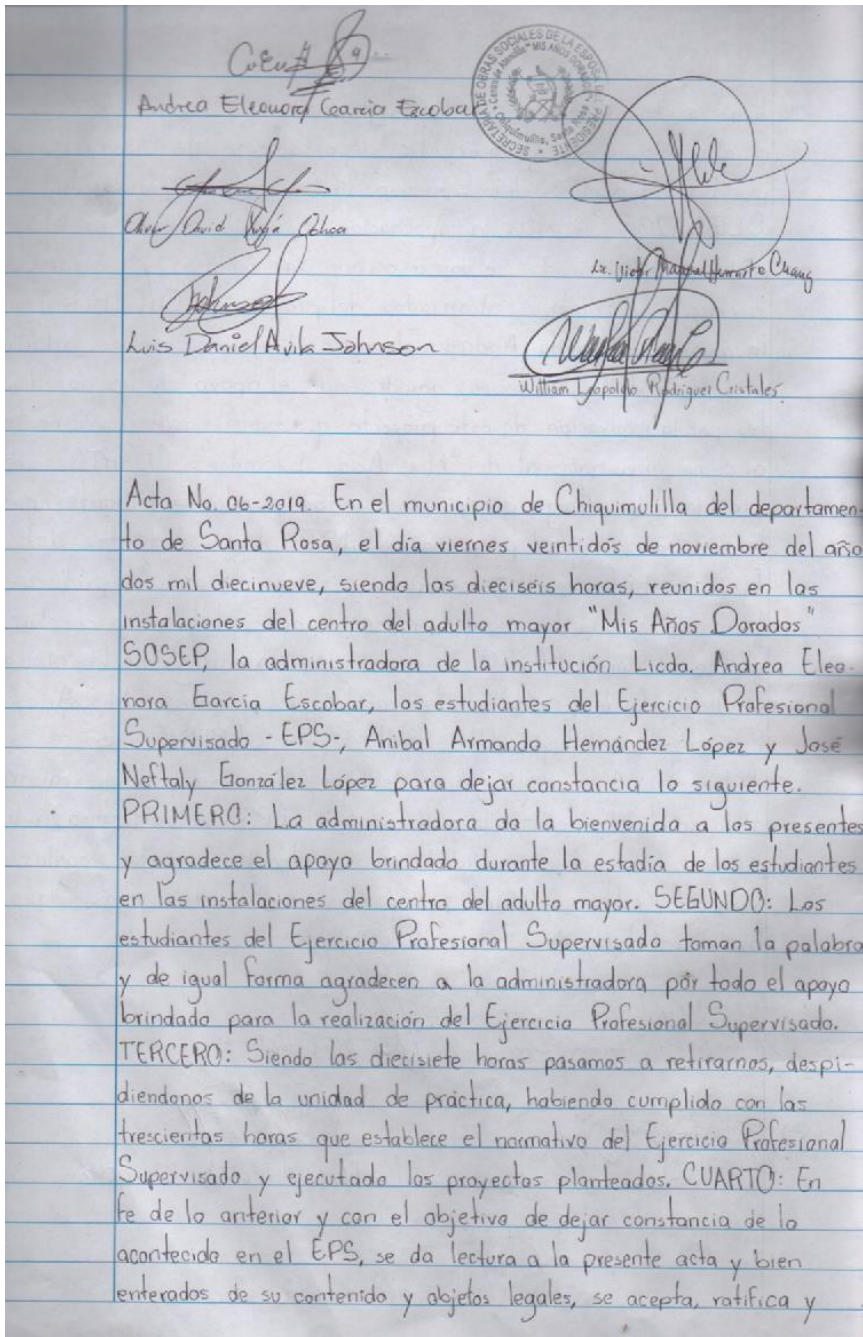 Andrea Eleonora García Escobar
SECRETARIA DE OBRAS SOCIALES DE LA ESPOSA DEL PRESIDENTE
"MIS AÑOS DORADOS"
Chiquimulilla, Santa Rosa
David Ochoa
Lic. Victor Manuel Chang
Luis Daniel Avila Johnson
William Leopoldo Rodriguez Cristales.
Acta No. 06-2019. En el municipio de Chiquimulilla del departamen-
to de Santa Rosa, el día viernes veintidós de noviembre del año
dos mil diecinueve, siendo las dieciséis horas, reunidos en las
instalaciones del centro del adulto mayor "Mis Años Dorados"
SOSEP, la administradora de la institución Licda. Andrea Eleo-
nora García Escobar, los estudiantes del Ejercicio Profesional
Supervisado - EPS-, Anibal Armando Hernández López y José
Neftaly González López para dejar constancia lo siguiente.
PRIMERO: La administradora da la bienvenida a los presentes
y agradece el apoyo brindado durante la estadía de los estudiantes
en las instalaciones del centro del adulto mayor. SEGUNDO: Los
estudiantes del Ejercicio Profesional Supervisado toman la palabra
y de igual forma agradecen a la administradora por todo el apoyo
brindado para la realización del Ejercicio Profesional Supervisado.
TERCERO: Siendo las diecisiete horas pasamos a retirarnos, despi-
diendonos de la unidad de práctica, habiendo cumplido con las
trescientas horas que establece el normativo del Ejercicio Profesional
Supervisado y ejecutado los proyectos planteados. CUARTO: En
fe de lo anterior y con el objetivo de dejar constancia de lo
acontecido en el EPS, se da lectura a la presente acta y bien
enterados de su contenido y objetos legales, se acepta, ratifica y